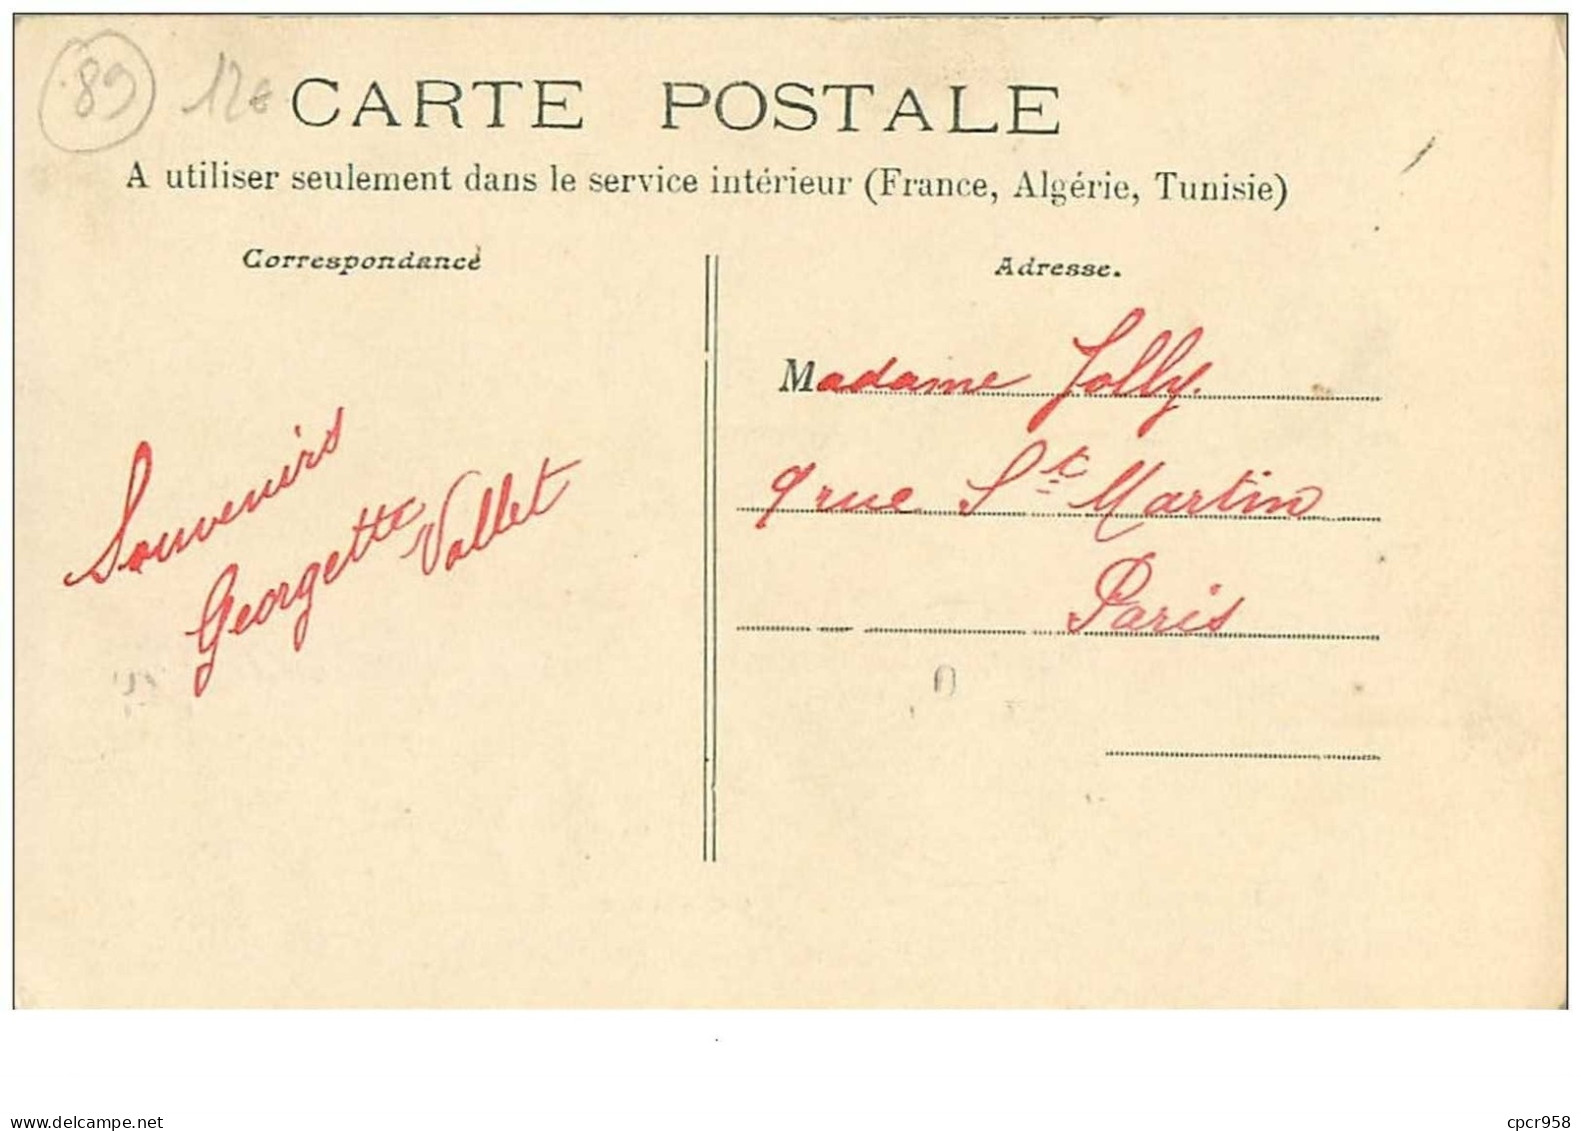 89 12€
CARTE POSTALE
A utiliser seulement dans le service intérieur (France, Algérie, Tunisie)
Correspondance
Adresse.
Souvenirs
Georgette Vallet
Madame Jolly.
9 rue St Martin
Paris
delcampe.net
cpcr958